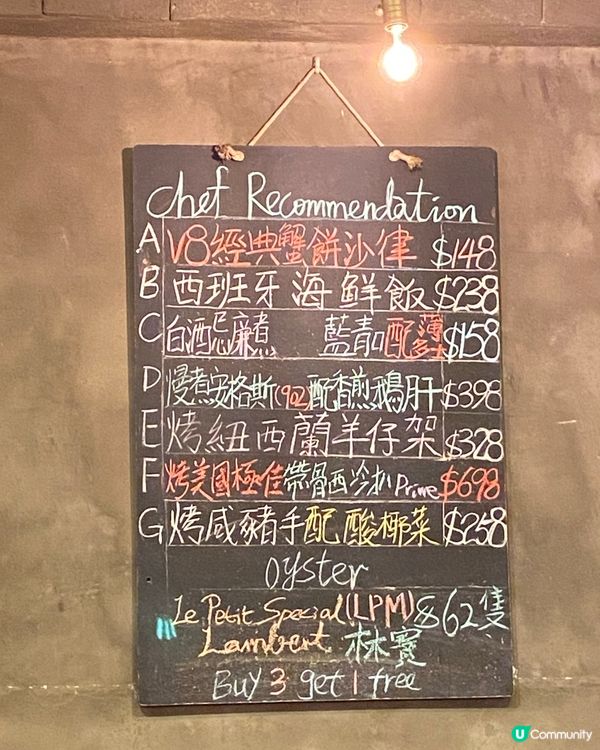 Chef Recommendation
A V8經典蟹餅沙律 $148
B 西班牙海鮮飯 $238
C 白酒忌廉煮 藍青口配薄多士 $158
D 慢煮安格斯(9oz)配香煎鵝肝 $398
E 烤紐西蘭羊仔架 $328
F 烤美國極佳帶骨西冷扒 Prime $698
G 烤咸豬手配酸椰菜 $258
Oyster
Le Petit Special (LPM) $62隻
Lambert 林寶
Buy 3 get 1 free
U Community